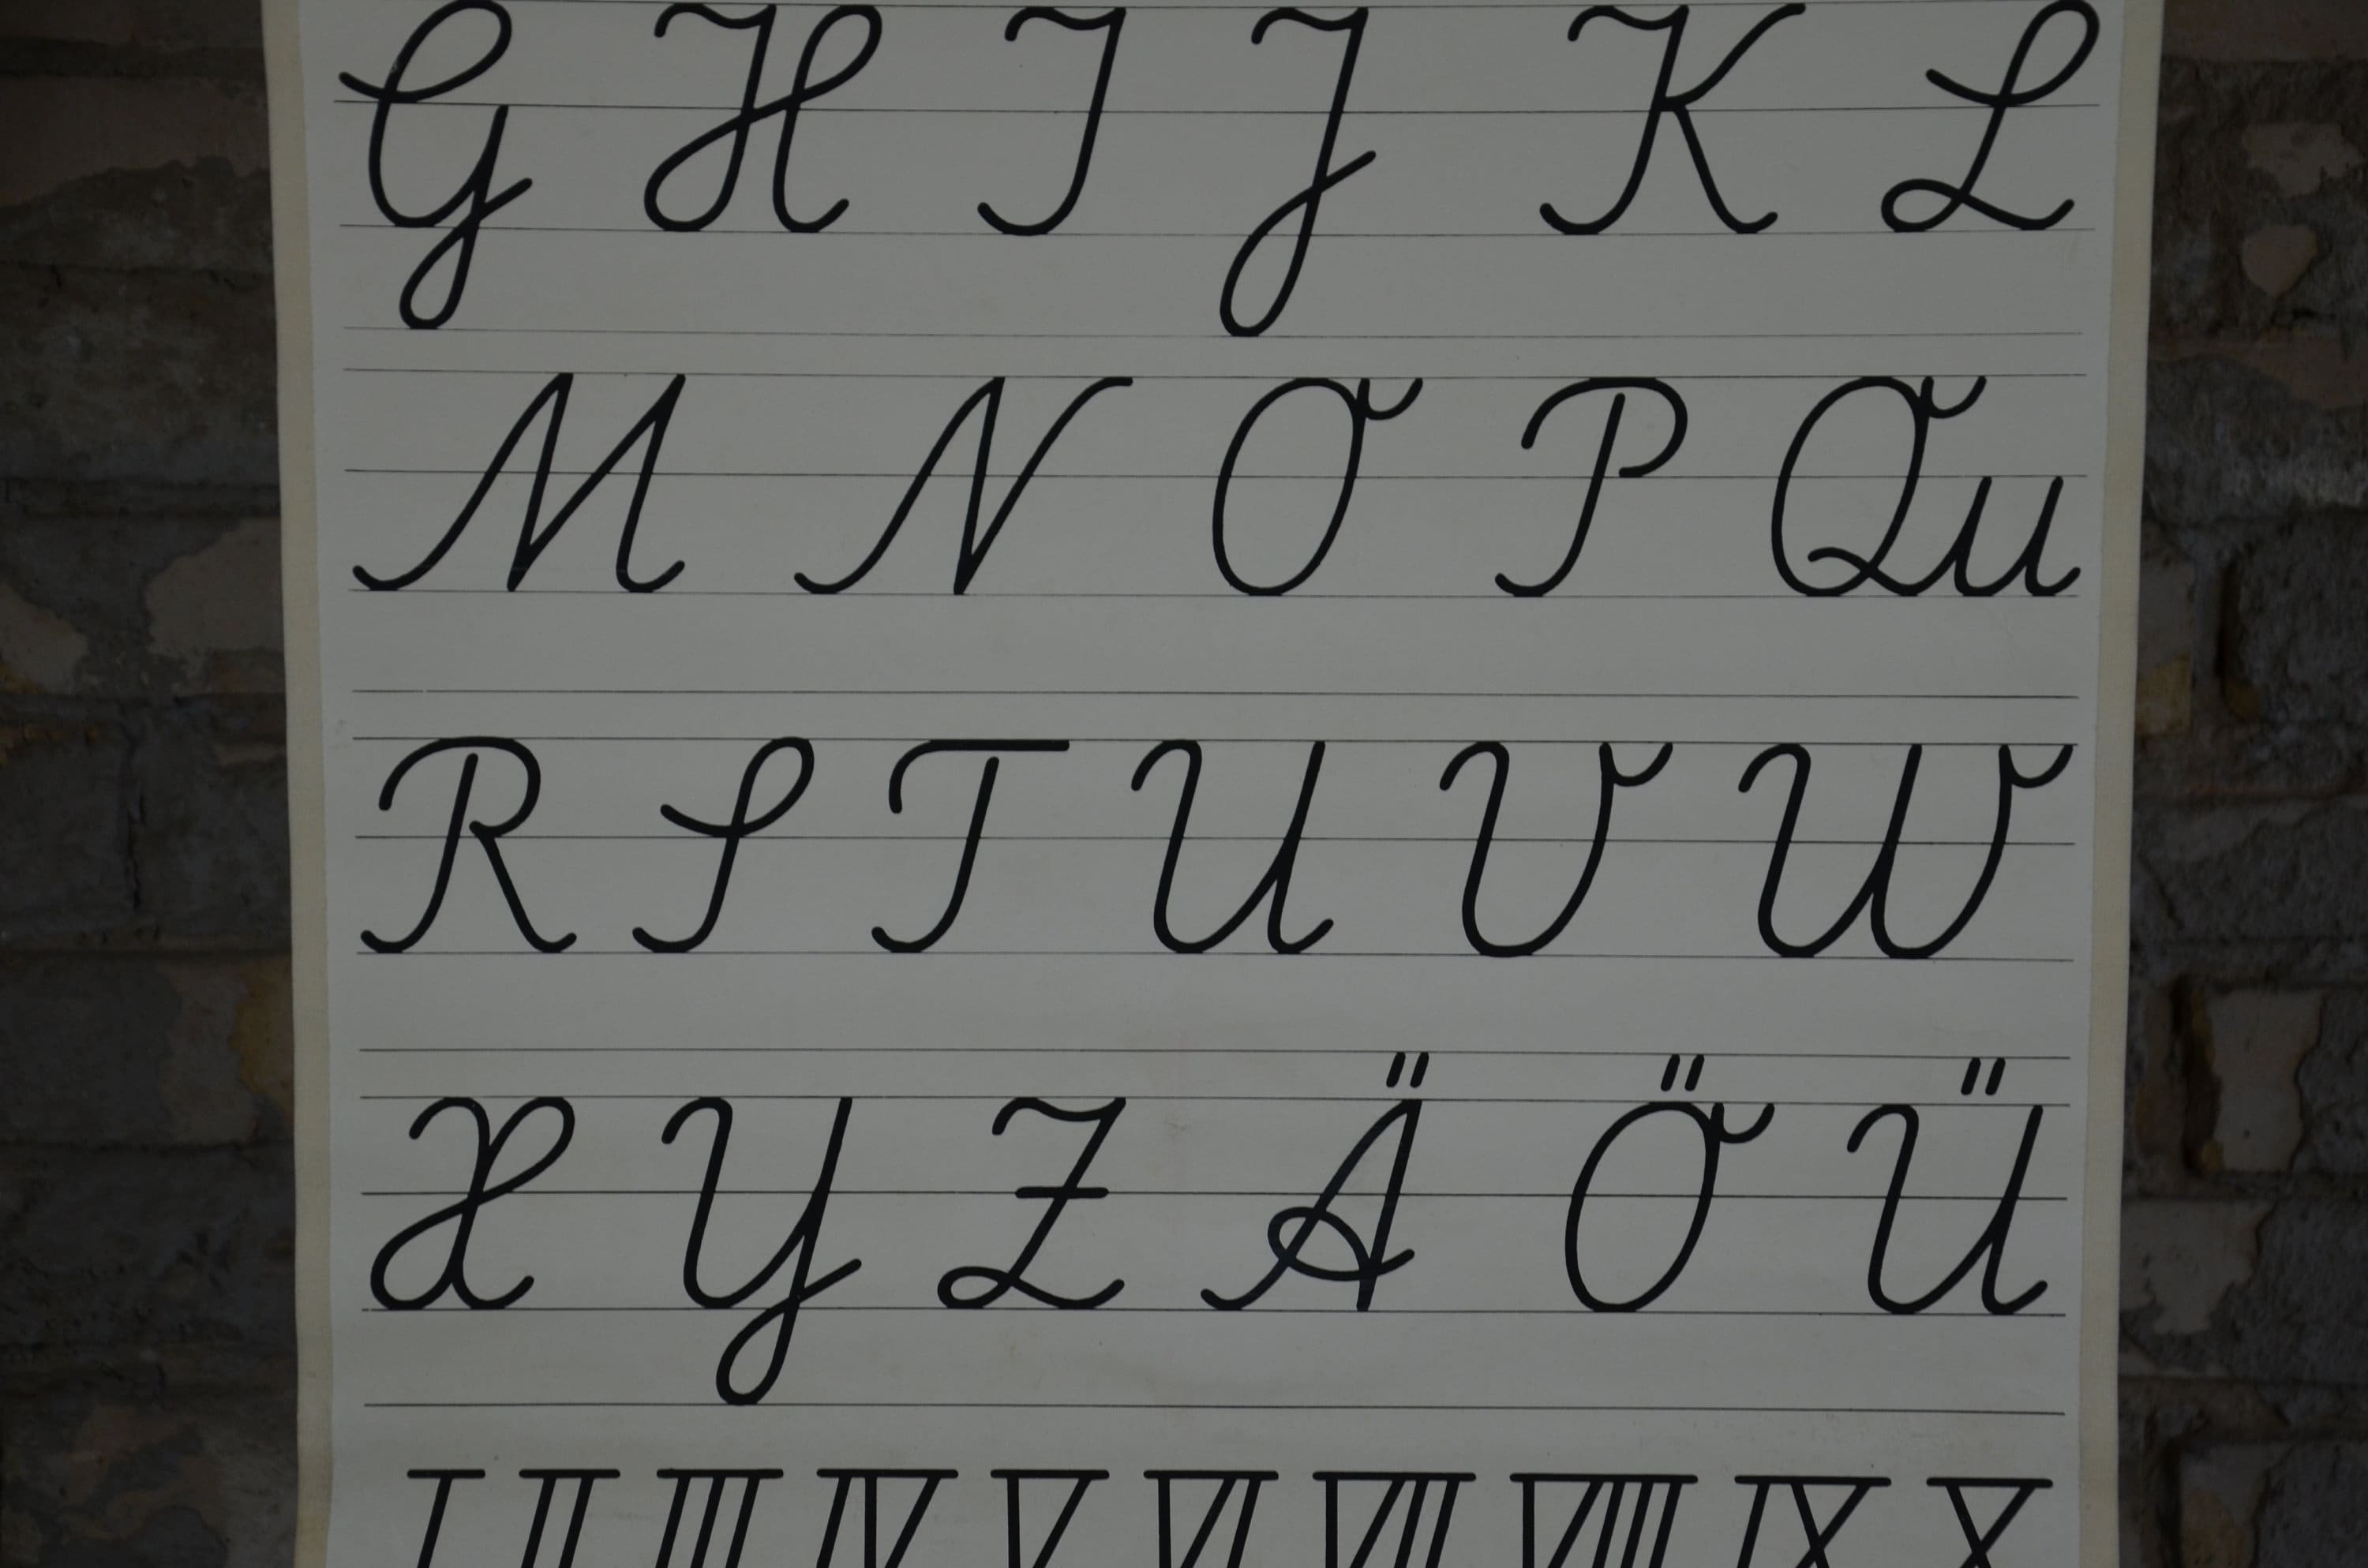 G H I J K L
M N O P Qu
R S T U V W
X Y Z Ä Ö Ü
I II III IV V VI VII VIII IX X